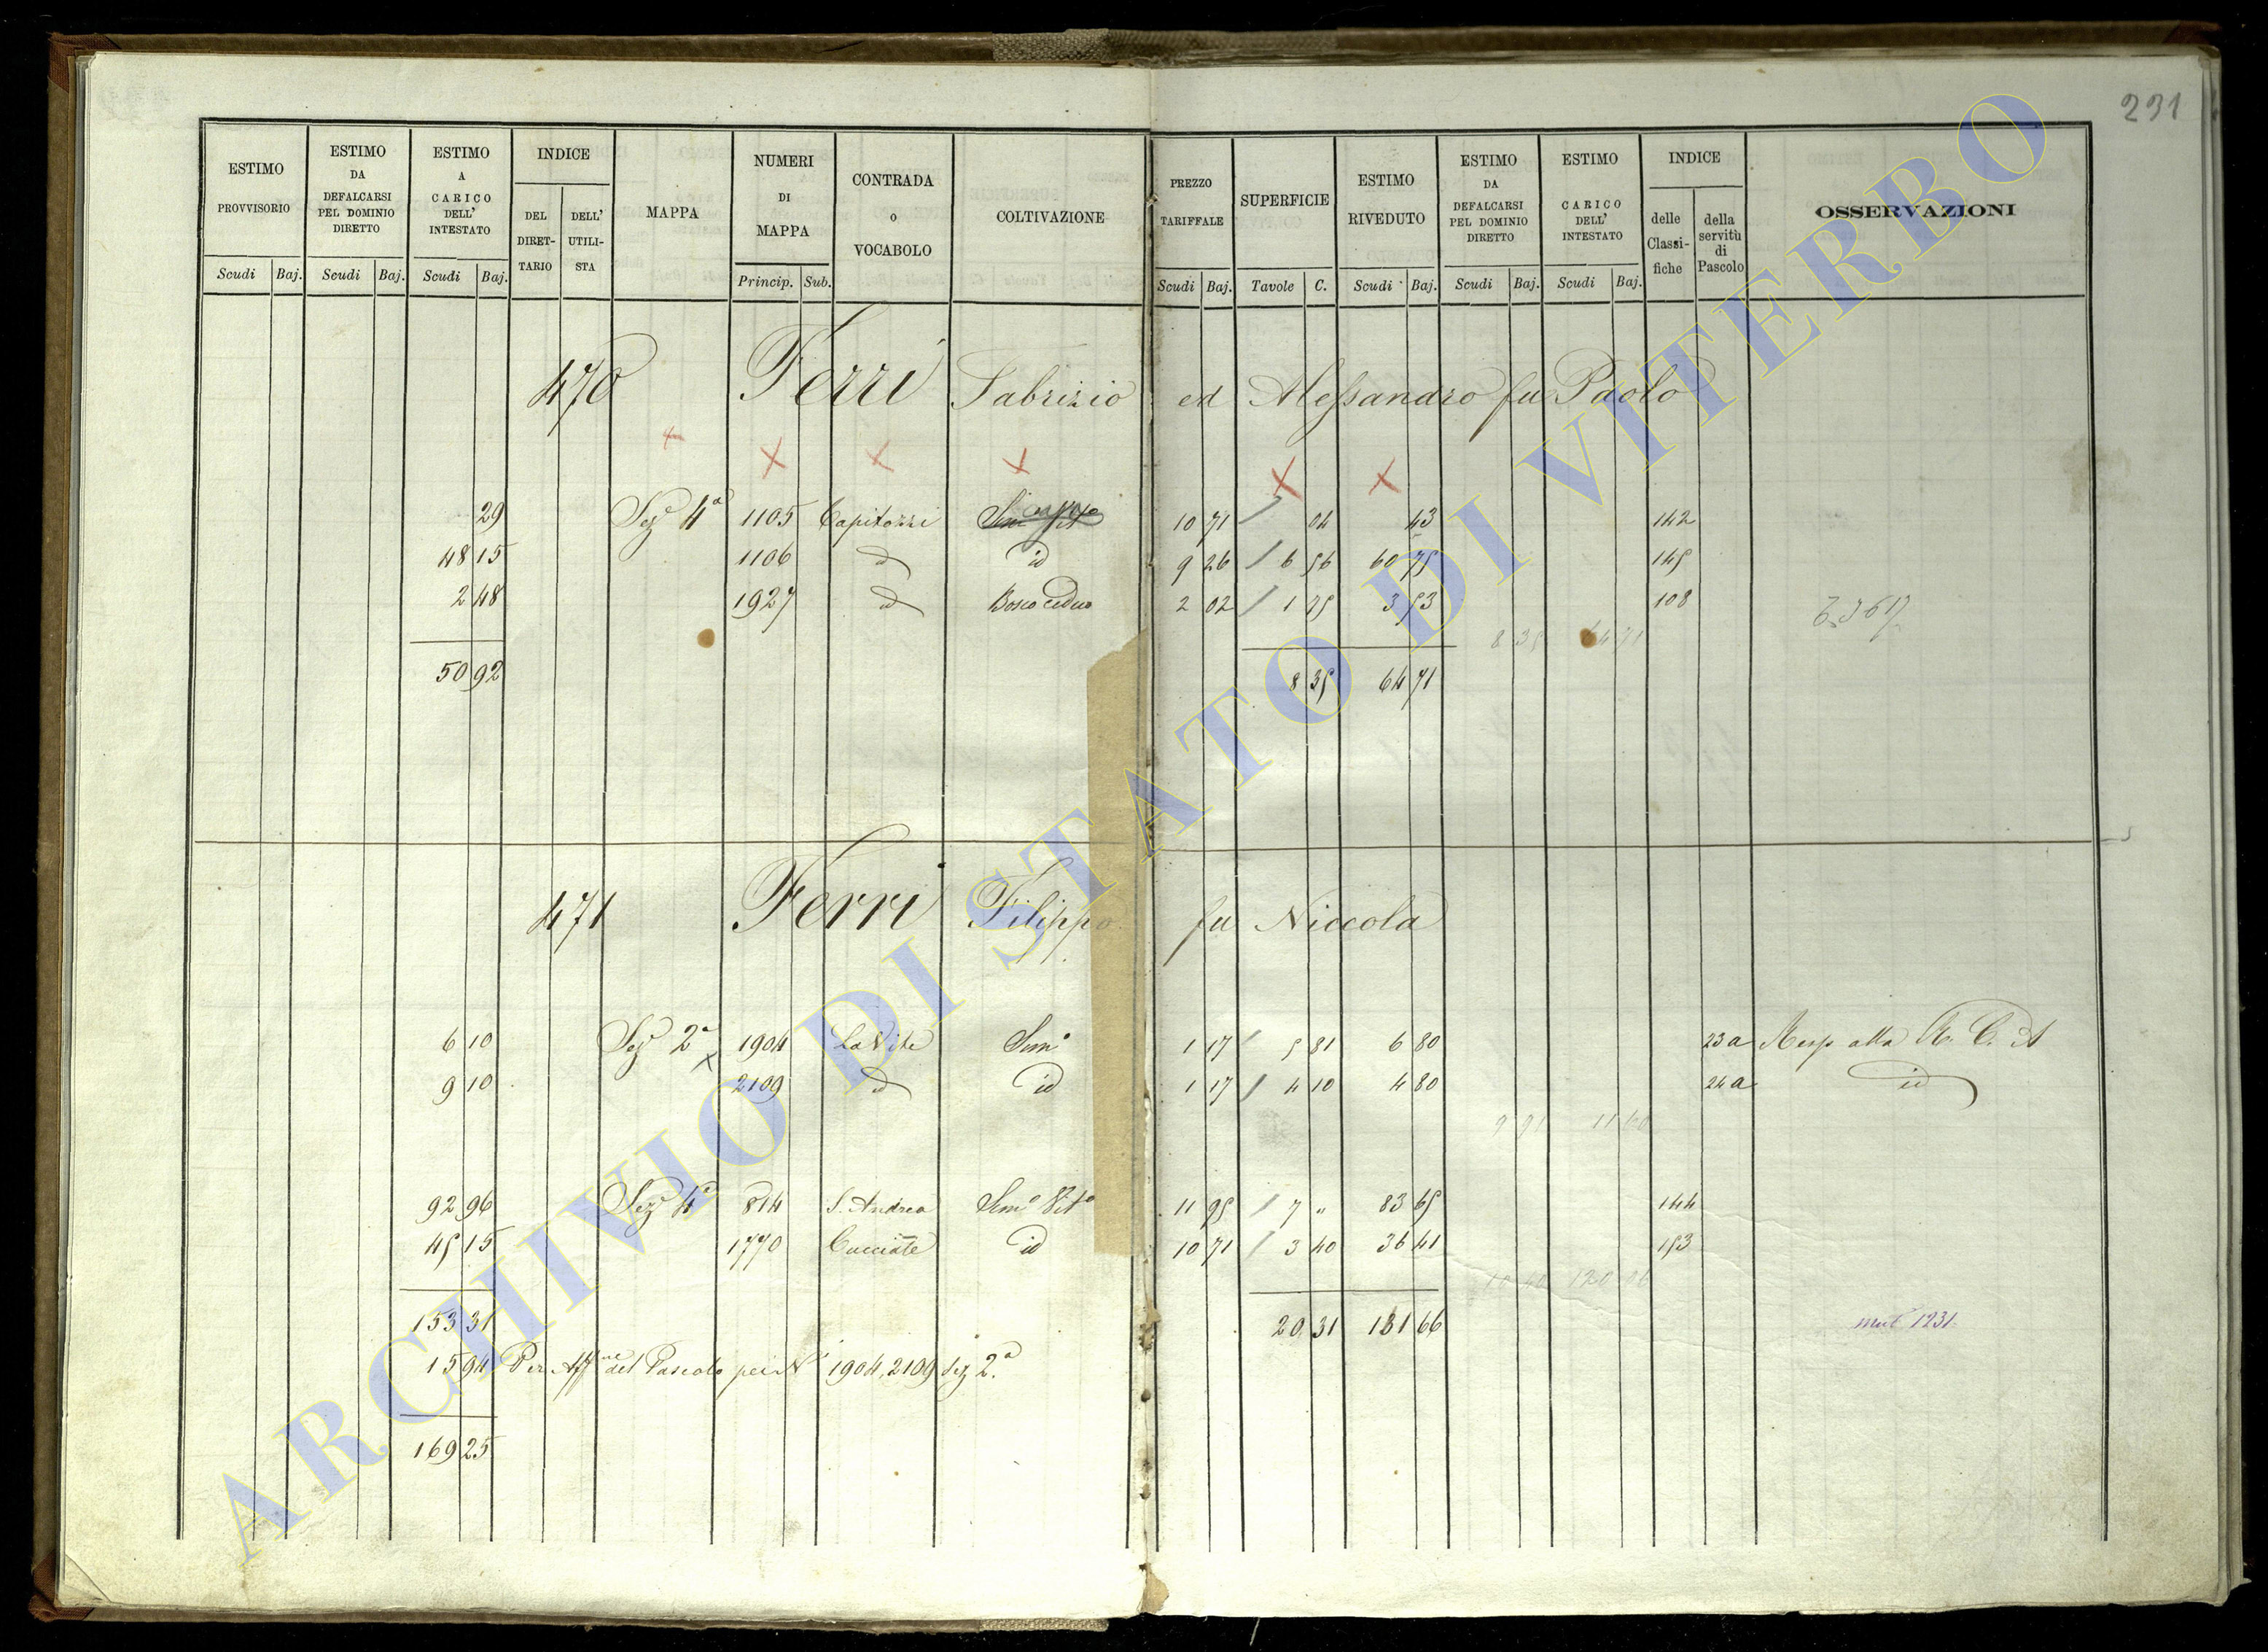 231
ESTIMO PROVVISORIO Scudi Baj.
ESTIMO DA DEFALCARSI PEL DOMINIO DIRETTO Scudi Baj.
ESTIMO A CARICO DELL' INTESTATO Scudi Baj.
INDICE DEL DIRET- TARIO DELL' UTILI- STA
MAPPA
NUMERI DI MAPPA Princip. Sub.
CONTRADA o VOCABOLO
COLTIVAZIONE
PREZZO TARIFFALE Scudi Baj.
SUPERFICIE Tavole C.
ESTIMO RIVEDUTO Scudi Baj.
ESTIMO DA DEFALCARSI PEL DOMINIO DIRETTO Scudi Baj.
ESTIMO A CARICO DELL' INTESTATO Scudi Baj.
INDICE delle Classi- fiche della servitù di Pascolo
OSSERVAZIONI
470 Ferri Fabrizio ed Alessandro fu Paolo
29 Sez 4a 1105 Capitozzi 10 71 04 43 142
48 15 1106 id id 9 26 6 56 60 75 145
2 48 1927 id Bosco Ceduo 2 02 1 75 3 53 108
8 35 64 71
50 92 8 35 64 71
471 Ferri Filippo fu Niccola
6 10 Sez 2a 1904 La Vite Semo 1 17 5 81 6 80 23a Resp alla R. C. A
9 10 2109 id id 1 17 4 10 4 80 24a id
9 91 11 60
92 96 Sez 4a 814 S. Andrea Semo Vito 11 95 7 " 83 65 144
45 15 1770 Cucciate id 10 71 3 40 36 41 153
10 40 120 06
153 31 20 31 131 66 mut 1231
15 94 Per Affne del Pascolo pei Ni 1904, 2109 Sez 2a.
169 25
ARCHIVIO DI STATO DI VITERBO